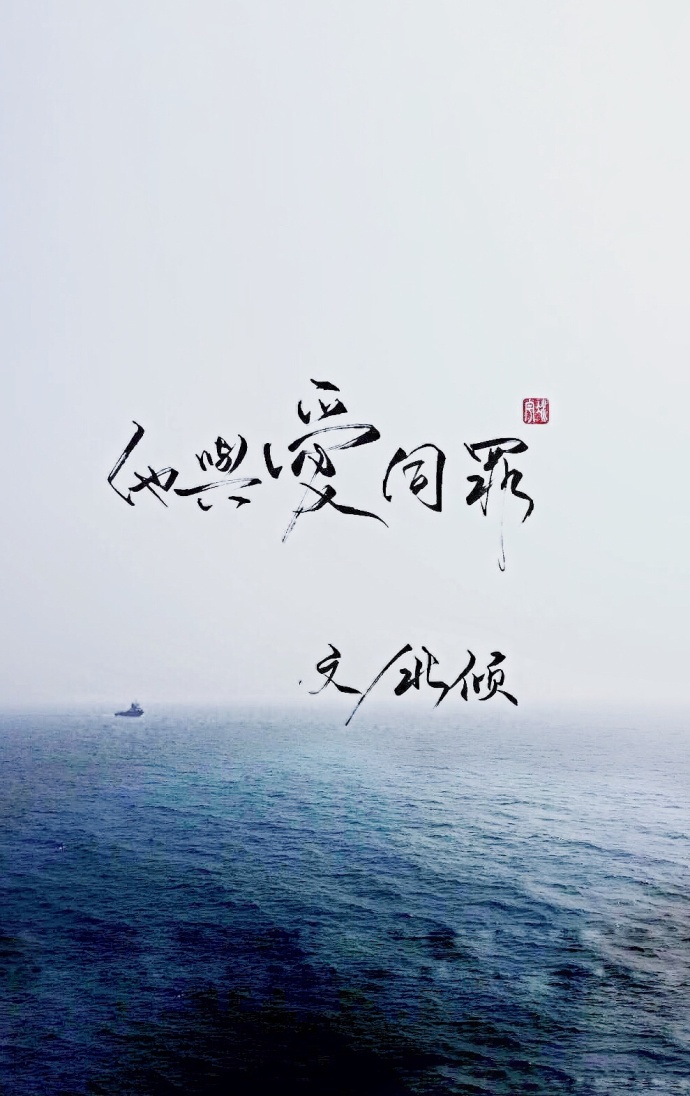 他與愛同罪
文/北倾